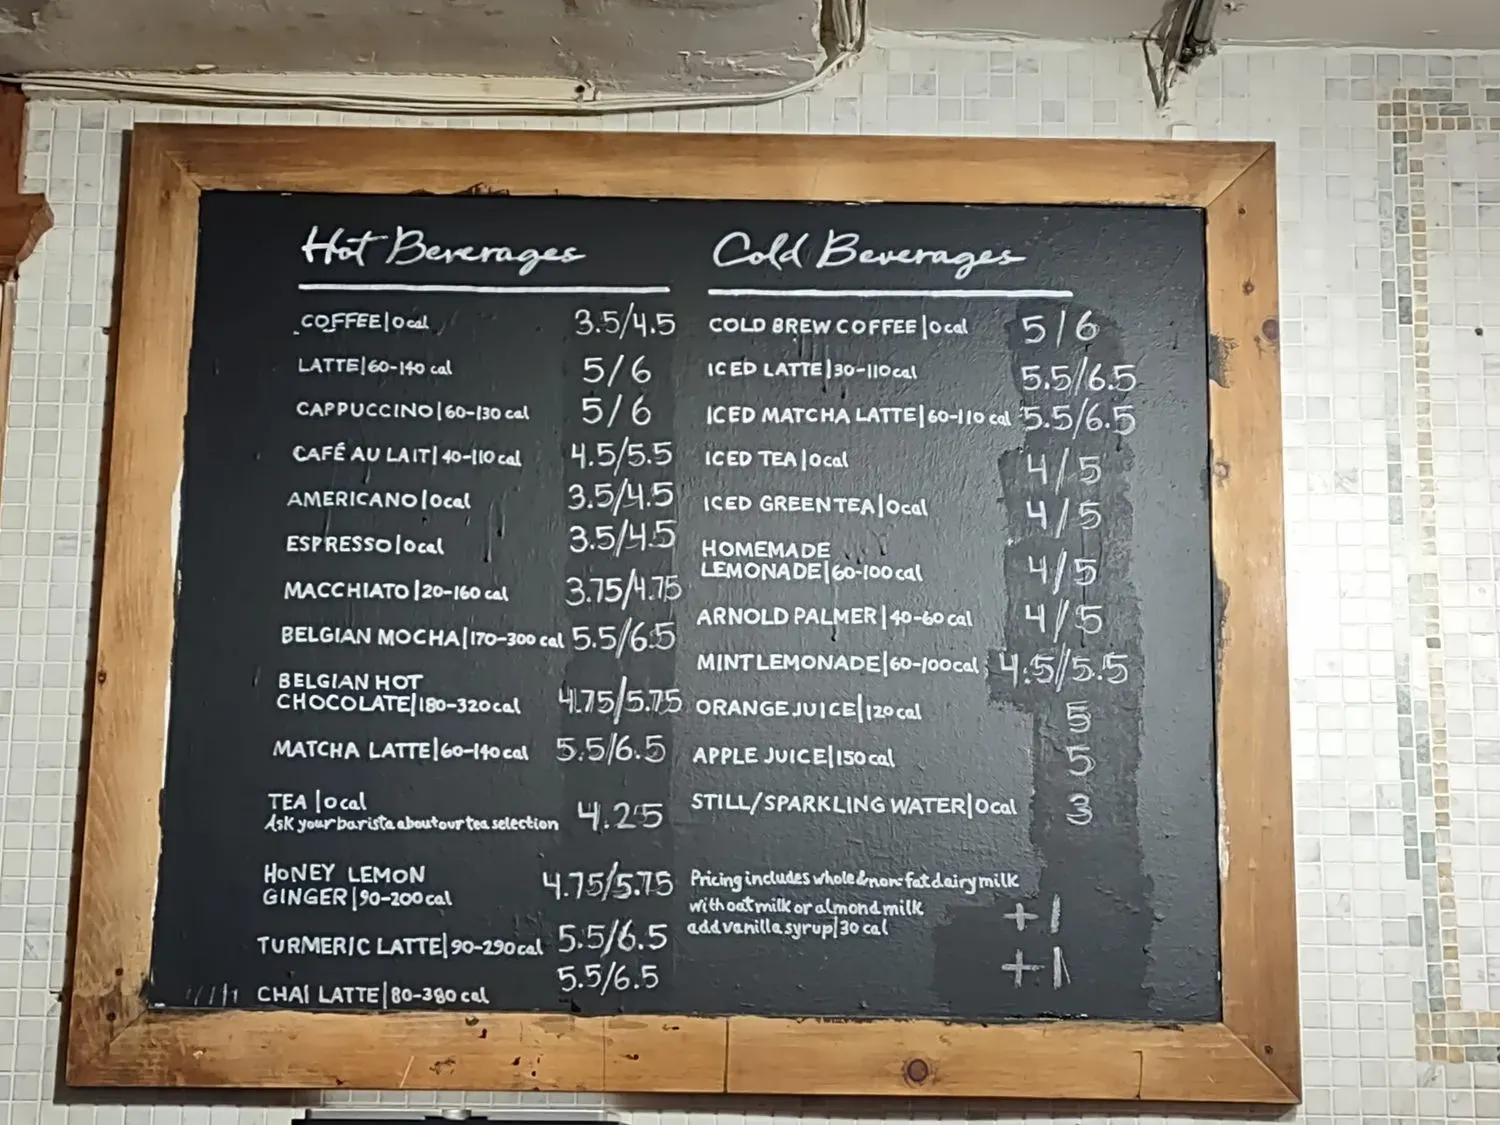 Hot Beverages
COFFEE|0 cal 3.5/4.5
LATTE|60-140 cal 5/6
CAPPUCCINO|60-130 cal 5/6
CAFÉ AU LAIT|40-110 cal 4.5/5.5
AMERICANO|0cal 3.5/4.5
ESPRESSO|0cal 3.5/4.5
MACCHIATO|20-160 cal 3.75/4.75
BELGIAN MOCHA|170-300 cal 5.5/6.5
BELGIAN HOT
CHOCOLATE|180-320cal 4.75/5.75
MATCHA LATTE|60-140 cal 5.5/6.5
TEA|0cal
Ask your barista about our tea selection 4.25
HONEY LEMON
GINGER|90-200 cal 4.75/5.75
TURMERIC LATTE|90-290 cal 5.5/6.5
CHAI LATTE|80-380 cal 5.5/6.5
Cold Beverages
COLD BREW COFFEE|0cal 5/6
ICED LATTE|30-110cal 5.5/6.5
ICED MATCHA LATTE|60-110 cal 5.5/6.5
ICED TEA|0cal 4/5
ICED GREEN TEA|0cal 4/5
HOMEMADE
LEMONADE|60-100 cal 4/5
ARNOLD PALMER|40-60 cal 4/5
MINT LEMONADE|60-100cal 4.5/5.5
ORANGE JUICE|120 cal 5
APPLE JUICE|150 cal 5
STILL/SPARKLING WATER|0cal 3
Pricing includes whole & non-fat dairy milk
with oat milk or almond milk +1
add vanilla syrup|30 cal +1